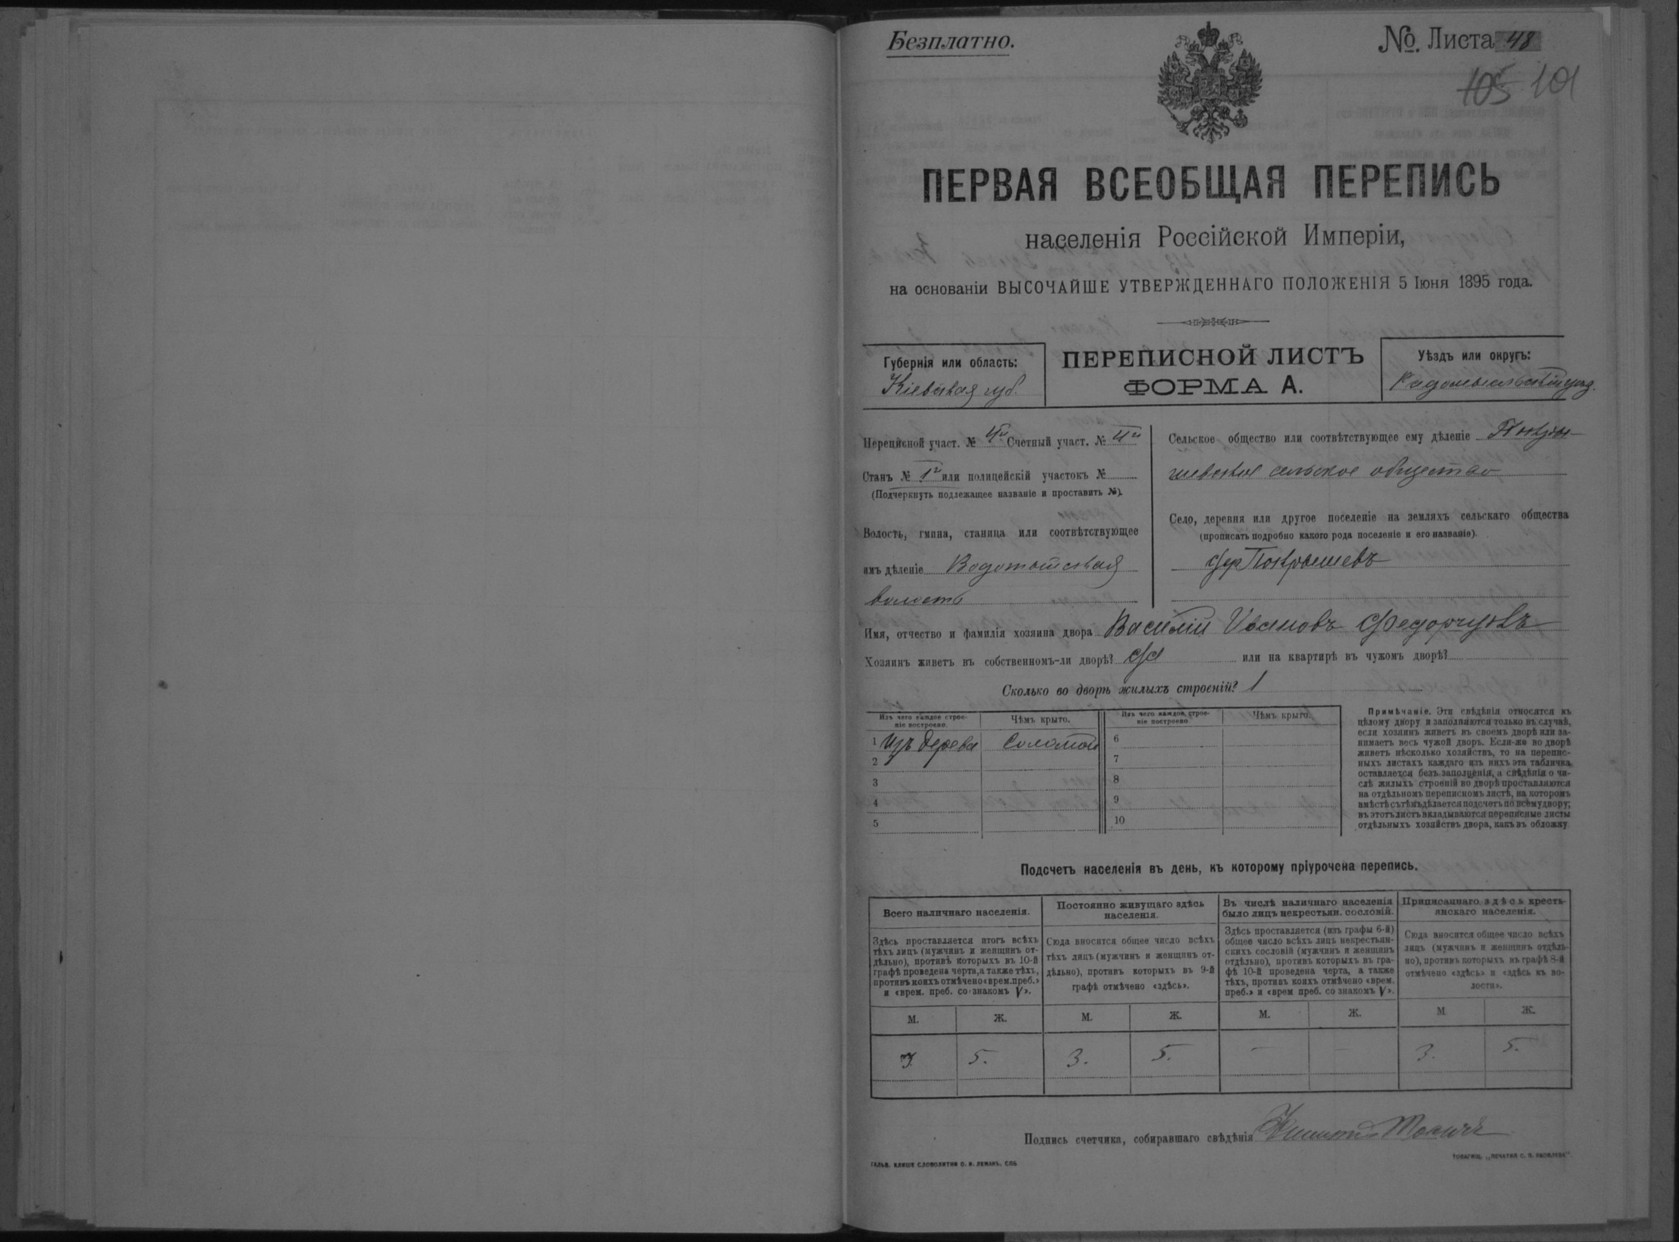 Безплатно.
№. Листа 48
105 101
ПЕРВАЯ ВСЕОБЩАЯ ПЕРЕПИСЬ
населенія Россійской Имперіи,
на основаніи ВЫСОЧАЙШЕ УТВЕРЖДЕННАГО ПОЛОЖЕНІЯ 5 Іюня 1895 года.
Губернія или область:
Кіевская губ.
ПЕРЕПИСНОЙ ЛИСТЪ
ФОРМА А.
Уѣздъ или округъ:
Радомысльскій уѣзд.
Переписной участ. № 4й Счетный участ. № 4й
Станъ № 1й или полицейскій участокъ №
(Подчеркнуть подлежащее названіе и проставить №).
Волость, гмина, станица или соотвѣтствующее
имъ дѣленіе Водотыйская
волость
Сельское общество или соотвѣтствующее ему дѣленіе Покры-
шевское сельское общество
Село, деревня или другое поселеніе на земляхъ сельскаго общества
(прописать подробно какого рода поселеніе и его названіе).
дер Покрышевъ
Имя, отчество и фамилія хозяина двора Василій Ивановъ Федорчукъ
Хозяинъ живетъ въ собственномъ-ли дворѣ? да или на квартирѣ въ чужомъ дворѣ?
Сколько во дворѣ жилыхъ строеній? 1
Изъ чего каждое строе-
ніе построено.
Чѣмъ крыто.
Изъ чего каждое строе-
ніе построено.
Чѣмъ крыто.
1 Изъ дерева Соломой 6
2 7
3 8
4 9
5 10
Примѣчаніе. Эти свѣдѣнія относятся къ
цѣлому двору и заполняются только въ случаѣ,
если хозяинъ живетъ въ своемъ дворѣ или за-
нимаетъ весь чужой дворъ. Если-же во дворѣ
живетъ нѣсколько хозяйствъ, то на перепис-
ныхъ листахъ каждаго изъ нихъ эта табличка
оставляется безъ заполненія, а свѣдѣнія о чи-
слѣ жилыхъ строеній во дворѣ проставляются
на отдѣльномъ переписномъ листѣ, на которомъ
вмѣстѣ съ тѣмъ дѣлается подсчетъ по всему двору;
въ этотъ листъ вкладываются переписные листы
отдѣльныхъ хозяйствъ двора, какъ въ обложку.
Подсчетъ населенія въ день, къ которому пріурочена перепись.
Всего наличнаго населенія.
Здѣсь проставляется итогъ всѣхъ
тѣхъ лицъ (мужчинъ и женщинъ от-
дѣльно), противъ которыхъ въ 10-й
графѣ проведена черта, а также тѣхъ,
противъ коихъ отмѣчено «врем. преб.»
и «врем. преб. со знакомъ V».
Постоянно живущаго здѣсь
населенія.
Сюда вносится общее число всѣхъ
тѣхъ лицъ (мужчинъ и женщинъ от-
дѣльно), противъ которыхъ въ 9-й
графѣ отмѣчено «здѣсь».
Въ числѣ наличнаго населенія
было лицъ некрестьян. сословій.
Здѣсь проставляется (изъ графы 6-й)
общее число всѣхъ лицъ некрестьян-
скихъ сословій (мужчинъ и женщинъ
отдѣльно), противъ которыхъ въ гра-
фѣ 10-й проведена черта, а также
тѣхъ, противъ коихъ отмѣчено «врем.
преб.» и «врем преб. со знакомъ V».
Приписаннаго здѣсь кресть-
янскаго населенія.
Сюда вносится общее число всѣхъ
лицъ (мужчинъ и женщинъ отдѣль-
но), противъ которыхъ въ графѣ 8-й
отмѣчено «здѣсь» и «здѣсь въ во-
лости».
М. Ж. М. Ж. М. Ж. М. Ж.
3. 5. 3. 5. - - 3. 5.
Подпись счетчика, собиравшаго свѣдѣнія
ГАЛЬВ. КЛИШЕ СЛОВОЛИТНИ О. И. ЛЕМАНЪ, СПБ.
ТОВАРИЩ. „ПЕЧАТНЯ С. П. ЯКОВЛЕВА"